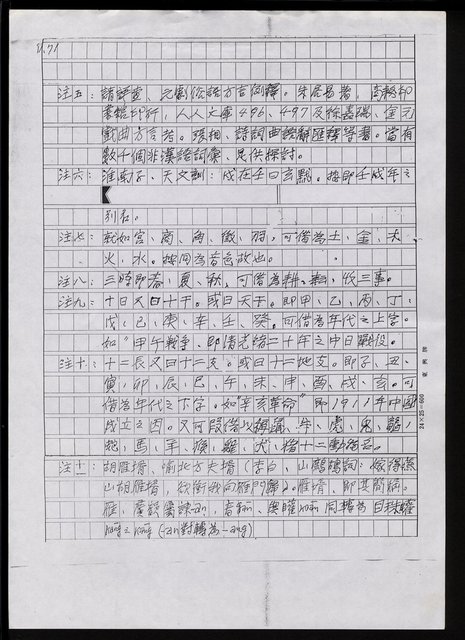 注五：請詳查、元劇俗語方言例釋。朱居易著，商務印
書館印行，人人文庫496、497及徐嘉瑞、金元
戲曲方言考。張相、詩詞曲語辭匯釋等書。當有
數千個非漢語詞彙，足供探討。
注六：淮南子、天文訓：戊在壬曰玄黓。指即壬戌年之
別名。
注七：就如宮、商、角、徵、羽。可借為土、金、木
火、水。按同為首色故也。
注八：三時即春、夏、秋，可借為耕、耘、收三事。
注九：十日又曰十干。或曰天干。即甲、乙、丙、丁、
戊、己、庚、辛、壬、癸。可借為年代之上字。
如“甲午戰爭”即清光緒二十年之中日戰役。
注十：十二辰又曰十二支。或曰十二地支。即子、丑、
寅、卯、辰、巳、午、未、申、酉、戌、亥。可
借為年代之下字。如“辛亥革命”即1911年中國
成立之因。又可段借以鼠、牛、虎、兔、龍、
蛇、馬、羊、猴、雞、犬、豬十二動物名。
注十一：胡雁壻，喻北方夫壻（李白、山鷓鴣詞：嫁得燕
山胡雁壻，欲銜我向雁門歸）。雁壻，即其簡稱。
24×25=600